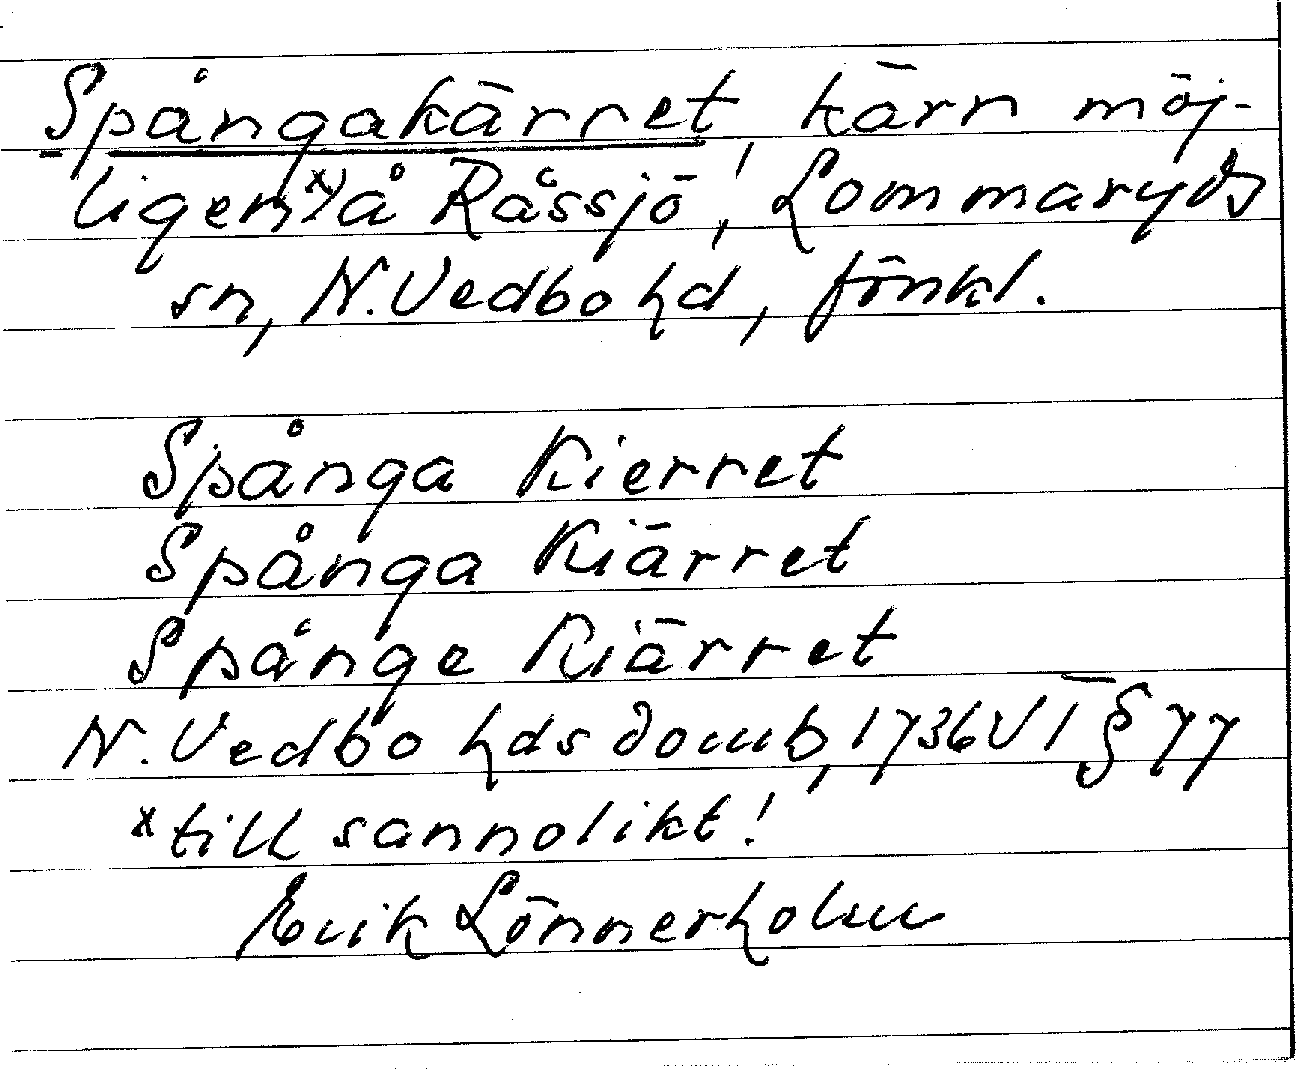 Spångakärret kärn möj-
ligen x) å Råssjö, Lommaryds
sn, N. Vedbo hd, Jönkl.
Spånga Kierret
Spånga Kiärret
Spånge Kiärret
N. Vedbo hds domb, 1736 VI § 77
x till sannolikt!
Erik Lönnerholm